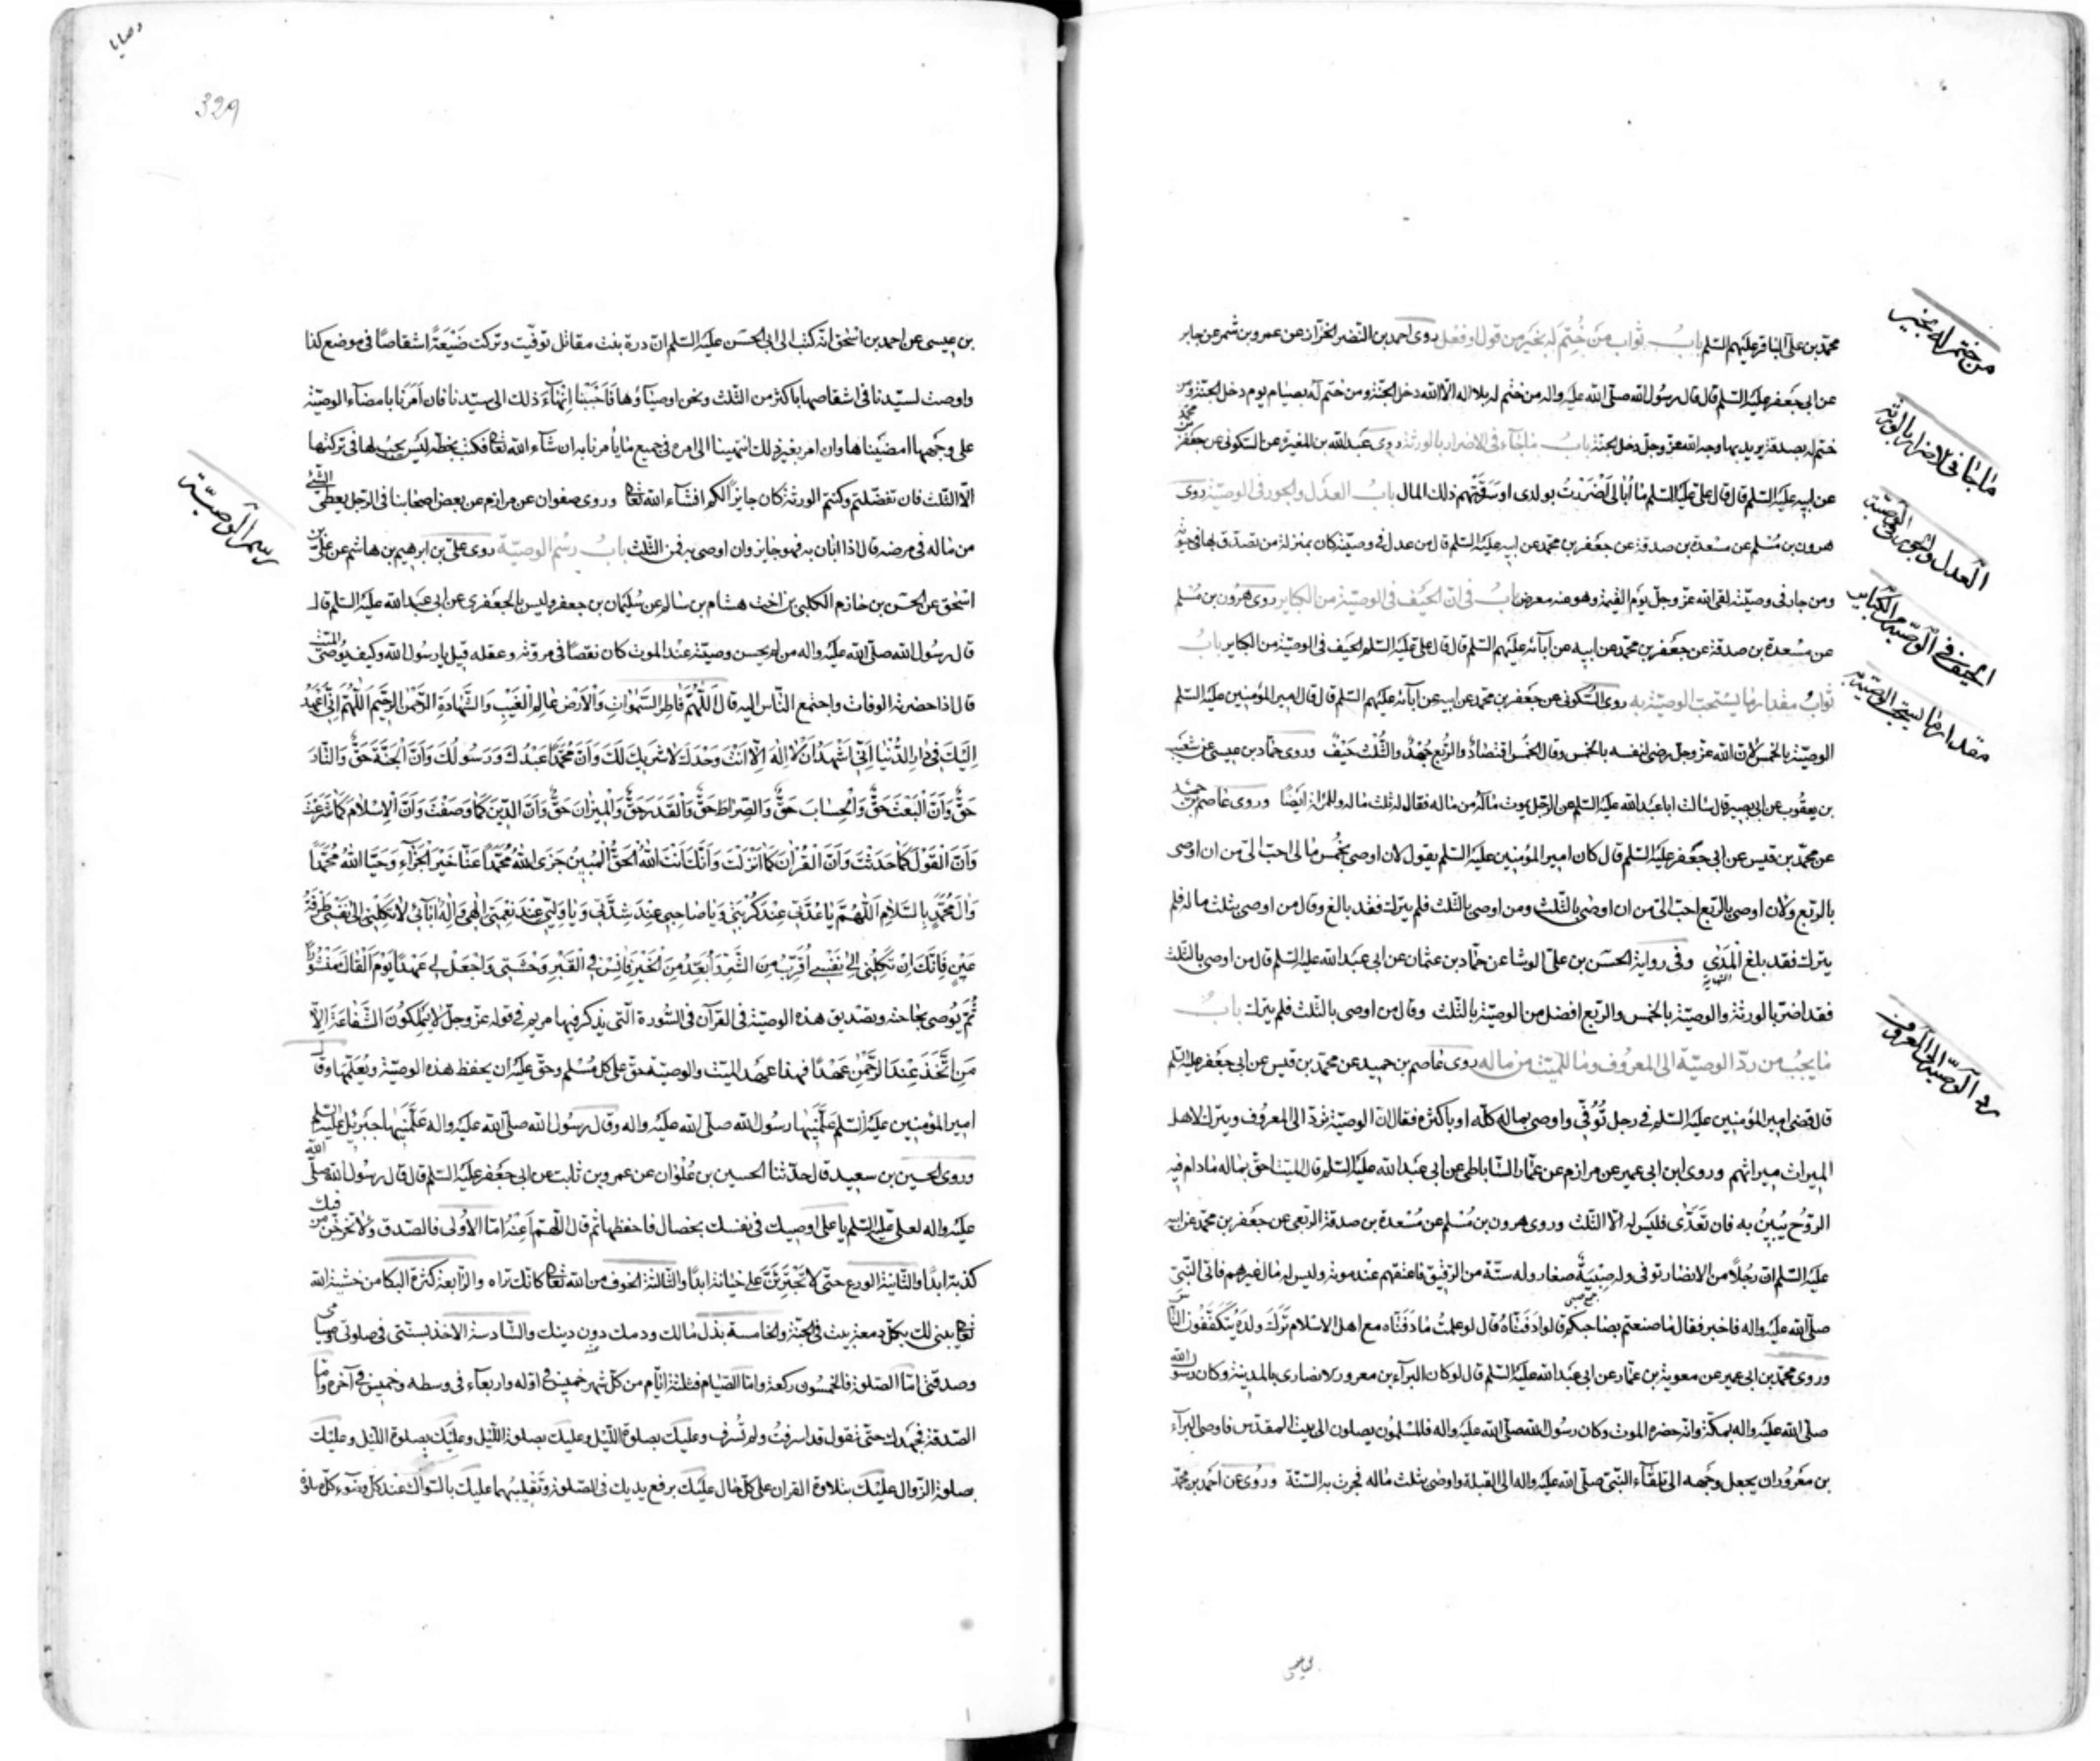 من ختم له بخير
محمّد بن علىّ الباقر عليهم السّلم باب ثواب من خُتِمَ له بخير من قول او فعل روى احمد بن النّضر الخزّاز عن عمرو بن شمر عن جابر
عن ابى جعفر عليه السّلم قال قال رسول الله صلّى الله عليه واله من ختم له بلا اله الّا الله دخل الجنّة ومن ختم له بصيام يوم دخل الجنّة ومن
ماجاء فى الاضرار بالورثة
ختم له بصدقة يريد بها وجه الله عزّ وجلّ دخل الجنّة باب ماجاء فى الاضرار بالورثة روى عبد الله بن المغيرة عن السّكونى عن جعفر بن محمّد
عن ابيه عليه السّلم قال قال علىّ عليه السّلم ما اُبالى اَضررتُ بولدى او سَرَقتهم ذلك المال باب العدل والجور فى الوصيّة روى
العدل والجور فى الوصيّة
هرون بن مُسْلم عن مسْعدة بن صدقة عن جعفر بن محمّد عن ابيه عليه السّلم قال من عدل فى وصيّته كان بمنزلة من تصدّق بها فى حيوته
ومن جار فى وصيّته لقى الله عزّ وجلّ يوم القيمة وهو عنه معرض باب فى انّ الحيف فى الوصيّة من الكباير روى هرون بن مُسْلم
الحيف فى الوصيّة من الكباير
عن مسْعدة بن صدقة عن جعفر بن محمّد عن ابيه عن آبائه عليهم السّلم قال قال علىّ عليه السّلم الحيف فى الوصيّة من الكباير باب
مقدار ما يستحبّ الوصيّة به
ثواب مقدار ما يستحبّ الوصيّة به روى السّكونى عن جعفر بن محمّد عن ابيه عن آبائه عليهم السّلم قال قال امير المؤمنين عليه السّلم
الوصيّة بالخمس لانّ الله عزّ وجلّ رضى لنفسه بالخمس وقال الخُمس اقتصادٌ والرّبع جُهْدٌ والثّلث حَيْفٌ وروى حمّاد بن عيسى عن شعيب
بن يعقوب عن ابى بصير قال سالت ابا عبد الله عليه السّلم عن الرّجل يموت ماله من ماله فقال له ثلث ماله وللمراة ايضًا وروى عاصم بن حميد
عن محمّد بن قيس عن ابى جعفر عليه السّلم قال كان امير المؤمنين عليه السّلم يقول لان اوصى بخُمس مالى احبّ الىّ من ان اوصى
بالرّبع ولان اوصى بالرّبع احبّ الىّ من ان اوصى بالثّلث ومن اوصى بالثّلث فلم يترك فقد بالغ وقال من اوصى بثلث ماله فلم
يترك فقد بلغ المَدى وفى رواية الحسن بن علىّ الوشا عن حمّاد بن عثمان عن ابى عبد الله عليه السّلم قال من اوصى بالثّلث
فقد اضرّ بالورثة والوصيّة بالخمس والرّبع افضل من الوصيّة بالثّلث وقال من اوصى بالثّلث فلم يترك باب
ردّ الوصيّة الى المعروف
ما يجب من ردّ الوصيّة الى المعروف وما للميّت من ماله روى عاصم بن حميد عن محمّد بن قيس عن ابى جعفر عليه السّلم
قال قضى امير المؤمنين عليه السّلم فى رجل تُوُفّى واوصى بماله كلّه او باكثره فقال انّ الوصيّة تردّ الى المعروف ويترك لاهل
الميراث ميراثهم وروى ابن ابى عمير عن مرازم عن عمّار السّاباطى عن ابى عبد الله عليه السّلم قال الميّت احقّ بماله مادام فيه
الرّوُح يُبِينُ به فان تَعَدّى فليس له الّا الثّلث وروى هرون بن مُسْلم عن مسْعدة بن صدقة الرّبعى عن جعفر بن محمّد عن ابيه
عليه السّلم انّ رجُلاً من الانصار توفى وله صِبْيَةٌ صغار وله ستّة من الرّقيق فاعتقهم عند موته وليس له مال غيرهم فاتى النّبىّ
صلّى الله عليه واله فاخبر فقال ما صنعتم بصاحبكم قالوا دَفَنّاهُ قال لو علمتُ ما دَفَنّاه مع اهل الاسْلام تَرَكَ ولدَهُ يَتَكَفَّفُون النّاس
وروى محمّد بن ابى عمير عن معوية بن عمّار عن ابى عبد الله عليه السّلم قال لو كان البرآء بن معرور الانصارى بالمدينة وكان رسول الله
صلّى الله عليه واله بمكّة وانّه حضره الموت وكان رسول الله صلّى الله عليه واله فالمسْلمون يصلون الى بيت المقدّس فاوصى البرآء
بن معرُور ان يجعل وجهه الى تلقآء النّبىّ صلّى الله عليه واله الى القبلة واوصى بثلث ماله فجرت به السّنّة وروى عن احمد بن محمّد
وصايا
329
بن عيسى عن احمد بن اسْحٰق انّه كتب الى ابى الحسَن عليه السّلم انّ درة بنت مقاتل توفّيت وتركت ضَيْعَةً اشقاصًا فى موضع كذا
واوصت لسيّدنا فى اشقاصها باكثر من الثّلث ونحن اوصيآؤها فَاَحْبَبْنا اِنهآءَ ذلك الى سيّدنا فان اَمَرَنا بامضآء الوصيّة
على وجهها امضَيْناها وان امر بغير ذلك انتهينا الى امره فى جميع ما يأمرنا به ان شآء الله تعالى فكتب بخطّه ليس يجب لها فى تركتها
الّا الثّلث فان تفضّلتم وكنتم الورثة كان جايزًا لكم انشآء الله تعالى وروى صفوان عن مرازم عن بعض اصحابنا فى الرّجل يعطى الشّىء
رسم الوصيّة
من ماله فى مرضه قال اذا ابان به فهو جايز وان اوصى به فمن الثّلث باب رسْم الوصيّة روى علىّ بن ابرهيم بن هاشم عن علىّ بن
اسْحٰق عن الحسَن بن حازم الكلبى بن اخت هشام بن سالم عن سُليمان بن جعفر وليس بالجعفرى عن ابى عبد الله عليه السّلم قال
قال رسُول الله صلّى الله عليه واله من لم يحسن وصيّته عند الموت كان نقصًا فى مروّته وعقله قيل يا رسُول الله وكيف يُوصى الميّت
قال اذا حضرته الوفاة واجتمع النّاس اليه قال اَللّٰهُمَّ فٰاطِرَ السَّمٰوٰاتِ وَالْاَرْضِ عٰالِمَ الْغَيْبِ وَالشَّهٰادَةِ الرَّحْمٰنَ الرَّحِيمَ اَللّٰهُمَّ اِنّى اَعْهَدُ
اِلَيْكَ فى دٰارِ الدُّنْيٰا اَنّى اَشْهَدُ اَنْ لٰا اِلٰهَ اِلّٰا اَنْتَ وَحْدَكَ لٰا شَرِيكَ لَكَ وَاَنَّ مُحَمَّدًا عَبْدُكَ وَرَسُولُكَ وَاَنَّ الْجَنَّةَ حَقٌّ وَالنّٰارَ
حَقٌّ وَاَنَّ الْبَعْثَ حَقٌّ وَالْحِسٰابَ حَقٌّ وَالصِّرٰاطَ حَقٌّ وَالْقَدَرَ حَقٌّ وَالْمِيزٰانَ حَقٌّ وَاَنَّ الدّينَ كَمٰا وَصَفْتَ وَاَنَّ الْاِسْلٰامَ كَمٰا شَرَعْتَ
وَاَنَّ الْقَوْلَ كَمٰا حَدَثْتَ وَاَنَّ الْقُرْاٰنَ كَمٰا اَنْزَلْتَ وَاَنَّكَ اَنْتَ اللهُ الْحَقُّ الْمُبِينُ جَزَى اللهُ مُحَمَّدًا عَنّٰا خَيْرَ الْجَزٰآءِ وَحَيَّا اللهُ مُحَمَّدًا
وَاٰلَ مُحَمَّدٍ بِالسَّلٰامِ اَللّٰهُمَّ يٰا عُدَّتى عِنْدَ كُرْبَتى وَيٰا صٰاحِبى عِنْدَ شِدَّتى وَيٰا وَلِيّى عِنْدَ نِعْمَتى اِلٰهى وَاِلٰهَ اٰبٰآئى لٰا تَكِلْنى اِلٰى نَفْسى طَرْفَةَ
عَيْنٍ فَاِنَّكَ اِنْ تَكِلْنى اِلٰى نَفْسى اُقَرَّبْ مِنَ الشَّرِّ وَاُبَعَّدْ مِنَ الْخَيْرِ فَاٰنِسْ فِى الْقَبْرِ وَحْشَتى وَاجْعَلْ لى عَهْدًا يَوْمَ اَلْقٰاكَ مَنْشُورًا
ثُمَّ يُوصى بحاجته وتصْديق هذه الوصيّة فى القرآن فى السّورة الّتى يذكر فيها مريم فى قوله عزّ وجلّ لٰا يَمْلِكُونَ الشَّفٰاعَةَ اِلّٰا
مَنِ اتَّخَذَ عِنْدَ الرَّحْمٰنِ عَهْدًا فهذا عهْد الميّت والوصيّة حقّ على كلّ مُسْلم وحقّ عليه ان يحفظ هذه الوصيّة ويُعلّمها وقال
امير المؤمنين عليه السّلم عَلَّمَنيها رسول الله صلّى الله عليه واله وقال رسُول الله صلّى الله عليه واله عَلَّمَنيها جبرئيل عليه السّلم
وروى الحسين بن سعيد قال حدّثنا الحسين بن عُلْوٰان عن عمرو بن ثابت عن ابى جعفر عليه السّلم قال قال رسُول الله صلّى الله
عليه واله لعلىّ عليه السّلم يا على اوصيك فى نفسك بخصال فاحفظها ثم قال اللّهمّ اَعِنْهُ امّا الاوُلى فالصّدق ولا تخرجنّ من فيك
كذبة ابدًا والثّانية الورع حتّى لا تَجْتَرِئَنَّ على خيانة ابدًا والثّالثة الخوف من الله تعالى كانّك تراه والرّابعة كثرة البكا من خشية الله
تعالى يبنى لك بكلّ دمعة بيت فى الجنّة والخامسة بذل مالك ودمك دون دينك والسّادسة الاخذ بسنّتى فى صلوتى وصيامى
وصدقتى امّا الصّلوة فالخمسُون ركعة وامّا الصّيام فثلثة ايّام من كلّ شهر خميس فى اوّله واربعآء فى وسطه وخميس فى آخره وامّا
الصّدقة فجهدك حتّى تقول قد اسرفتُ ولم تُسرف وعليك بصلوة اللّيل وعليك بصلوة اللّيل وعليك بصلوة اللّيل وعليك
بصلوة الزّوال عليك بتلاوة القران على كلّ حال عليك برفع يديك فى الصّلوة وتَقليبهما عليك بالسّواك عند كلّ وضوء كلّ صلوة